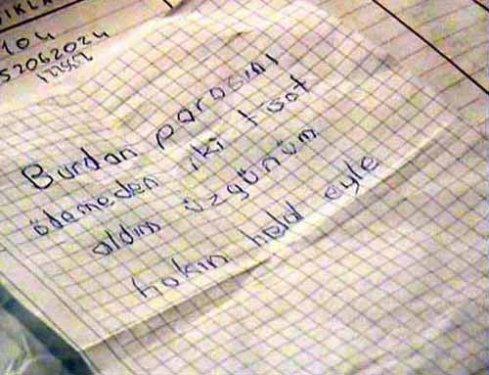 104
52062024
Burdan parasını
ödemeden iki tisöt
aldım üzgünüm
hakın helal eyle